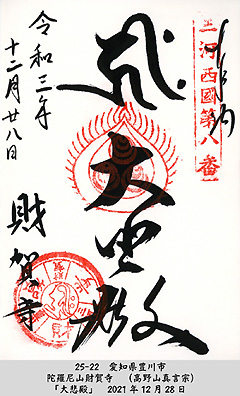 三河西國第八番
大悲殿
令和三年
十二月廿八日
財賀寺
25-22　愛知県豊川市
陀羅尼山財賀寺　（高野山真言宗）
「大悲殿」　2021年12月28日